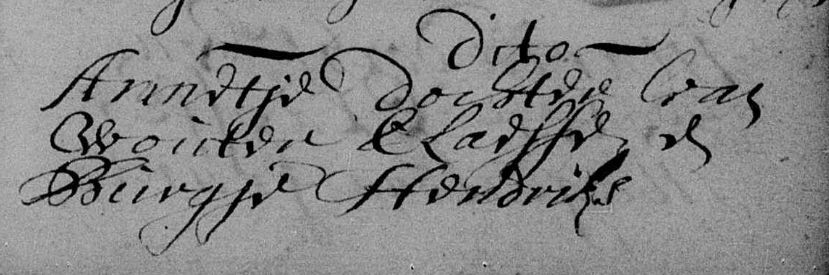 Dito
Annetje Dochter van
Wouter Claesse en
Burgje Hendriks